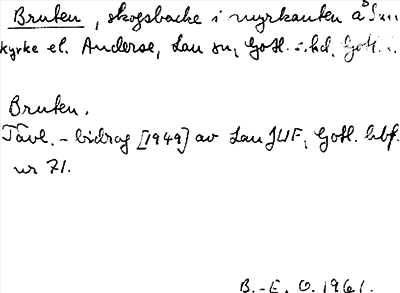 Bruten, skogsbacke i myrkanten å Sun
kyrke el. Anderse, Lau sn, Gotl. hd, Gotl.
Bruten.
Tävl.-bidrag [1949] av Lau JUF, Gotl. hbf.
nr 71.
B.-E. O. 1961.